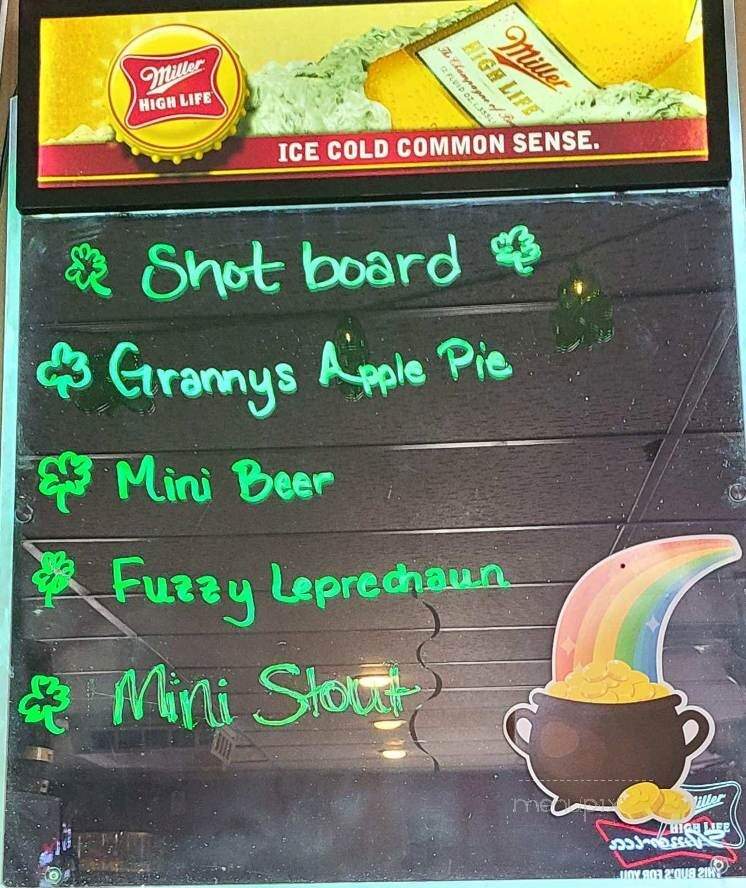 Miller
HIGH LIFE
Miller
HIGH LIFE
The Champagne of
ICE COLD COMMON SENSE.
Shot board
Grannys Apple Pie
Mini Beer
Fuzzy Leprechaun
Mini Stout
menupix
Miller
HIGH LIFE
America
THIS BUD'S FOR YOU